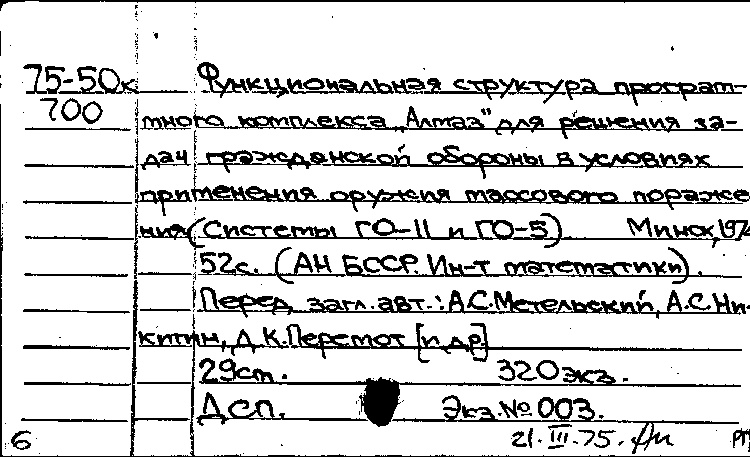 75-50к Функциональная структура програм-
700 много комплекса „Алмаз" для решения за-
дач гражданской обороны в условиях
применения оружия массового пораже
ния (Системы ГО-11 и ГО-5). Минск, 1974
52с. (АН БССР. Ин-т математики).
Перед загл. авт.: А.С.Метельский, А.С.Ни-
китин, Д.К.Перемот [и др.]
29см. 320экз.
ДСП. Экз.№003.
6 21.III.75.